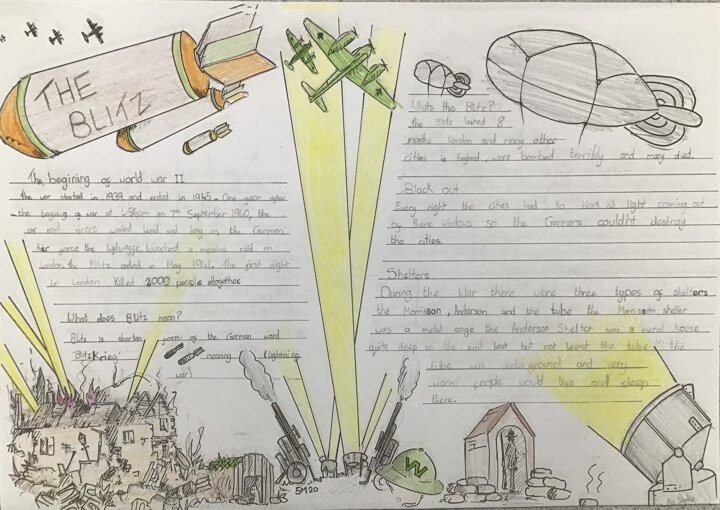 THE
BLITZ
The begining of world war II
The war started in 1939 and ended in 1945. One year after
the begining of war at 4:56pm on 7th September 1940, the
air raid sirens wailed loud and long as the German
air force the Luftwaffe launched a massive raid on
London. the Blitz ended in May 1941. The first night
in London killed 2000 people altogether.
What does Blitz mean?
Blitz is shorten form of the German word
'Blitzkrieg' meaning lightning
war!
Whats the Blitz?
The Blitz lasted 8
months London and many other
cities in England, were bombed terribly and many died.
Black out
Every night the cities had to block all light coming out
of there windows so the Germans couldnt destroy
the cities.
Shelters
During the war there were three types of shelters
the Morrisson Anderson and the tube the Morrisson shelter
was a metal cage the Anderson Shelter was a metal house
quite deep in the soil last but not least the tube the
tube was underground and very
warm people would live and sleep
there.
W
5M20